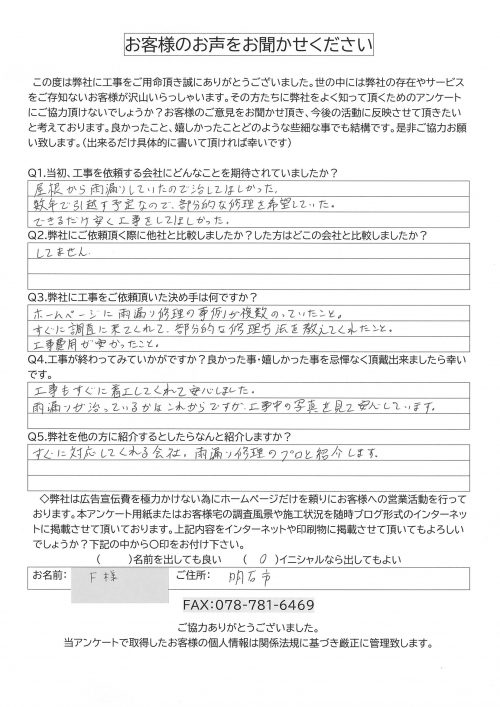 お客様のお声をお聞かせください
この度は弊社に工事をご用命頂き誠にありがとうございました。世の中には弊社の存在やサービス
をご存知ないお客様が沢山いらっしゃいます。その方たちに弊社をよく知って頂くためのアンケート
にご協力頂けないでしょうか？お客様のご意見をお聞かせ頂き、今後の活動に反映させて頂きたい
と考えております。良かったこと、嬉しかったことどのような些細な事でも結構です。是非ご協力お願
い致します。（出来るだけ具体的に書いて頂ければ幸いです）
Q1.当初、工事を依頼する会社にどんなことを期待されていましたか？
屋根から雨漏りしていたので治してほしかった。
数年で引越す予定なので、部分的な修理を希望していた。
できるだけ安く工事をしてほしかった。
Q2.弊社にご依頼頂く際に他社と比較しましたか？した方はどこの会社と比較しましたか？
してません.
Q3.弊社に工事をご依頼頂いた決め手は何ですか？
ホームページに雨漏り修理の事例が複数のっていたこと。
すぐに調査に来てくれて、部分的な修理方法を教えてくれたこと。
工事費用が安かったこと。
Q4.工事が終わってみていかがですか？良かった事・嬉しかった事を忌憚なく頂戴出来ましたら幸い
です。
工事もすぐに着工してくれて安心しました。
雨漏りが治っているかはこれからですが、工事中の写真を見て安心しています。
Q5.弊社を他の方に紹介するとしたらなんと紹介しますか？
すぐに対応してくれる会社。雨漏り修理のプロと紹介します。
◇弊社は広告宣伝費を極力かけない為にホームページだけを頼りにお客様への営業活動を行って
おります。本アンケート用紙またはお客様宅の調査風景や施工状況を随時ブログ形式のインターネッ
トに掲載させて頂いております。上記内容をインターネットや印刷物に掲載させて頂いてもよろしい
でしょうか？下記の中から〇印をお付け下さい。
（　　）名前を出しても良い　（ O ）イニシャルなら出してもよい
お名前： F 様 ご住所： 明石市
FAX：078-781-6469
ご協力ありがとうございました。
当アンケートで取得したお客様の個人情報は関係法規に基づき厳正に管理致します。